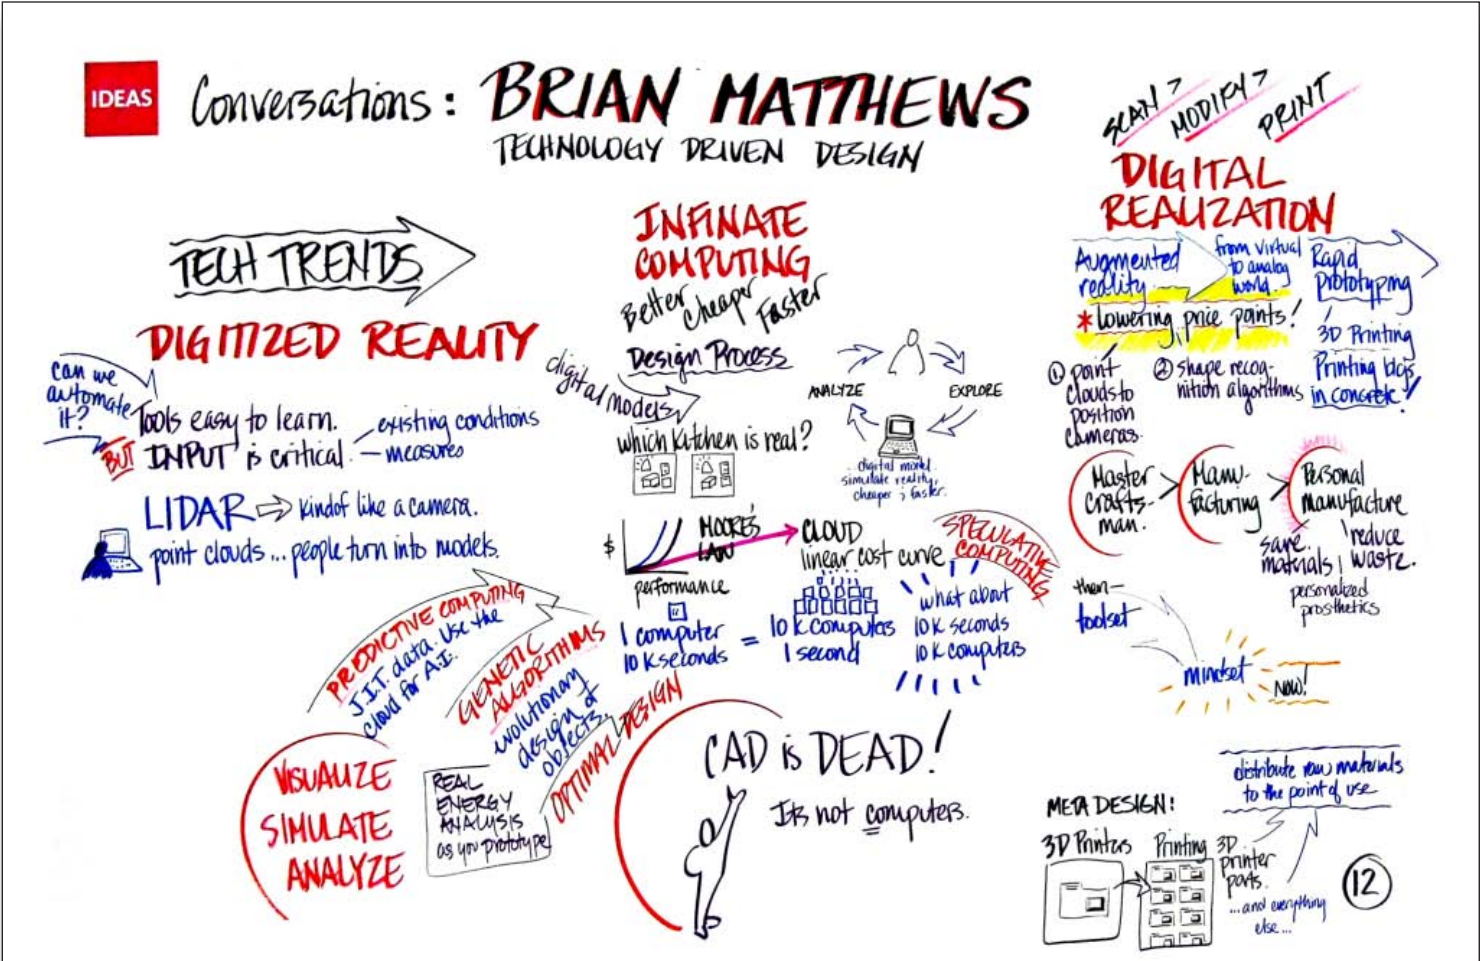 IDEAS
Conversations: BRIAN MATTHEWS
TECHNOLOGY DRIVEN DESIGN
TECH TRENDS
DIGITIZED REALITY
can we
automate
it?
Tools easy to learn.
BUT INPUT is critical.
existing conditions
measures
LIDAR kind of like a camera.
point clouds ... people turn into models.
PREDICTIVE COMPUTING
J.I.T. data. Use the
cloud for A.I.
GENETIC
ALGORITHMS
evolutionary
design of
objects.
OPTIMAL DESIGN
VISUALIZE
SIMULATE
ANALYZE
REAL
ENERGY
ANALYSIS
as you prototype
INFINATE
COMPUTING
Better Cheaper Faster
Design Process
digital models
which kitchen is real?
ANALYZE
EXPLORE
digital model.
simulate reality,
cheaper & faster.
$
MOORE'S
LAW
performance
CLOUD
linear cost curve
SPECULATIVE
COMPUTING
1 computer
10 K seconds
=
10 K computers
1 second
what about
10 K seconds
10 K computers
CAD is DEAD!
It's not computers.
SCAN > MODIFY > PRINT
DIGITAL
REALIZATION
Augmented
reality
from virtual
to analog
world.
Rapid
Prototyping
* lowering price points!
3D Printing
Printing bldgs
in concrete!
1 point
clouds to
position
cameras.
2 shape recog-
nition algorithms
Master
Crafts-
man.
>
Manu-
facturing
>
Personal
manufacture
save
materials
reduce
waste.
personalized
prosthetics
then—
toolset
mindset
Now!
distribute raw materials
to the point of use
META DESIGN:
3D Printers
Printing 3D
printer
parts.
...and everything
else...
12